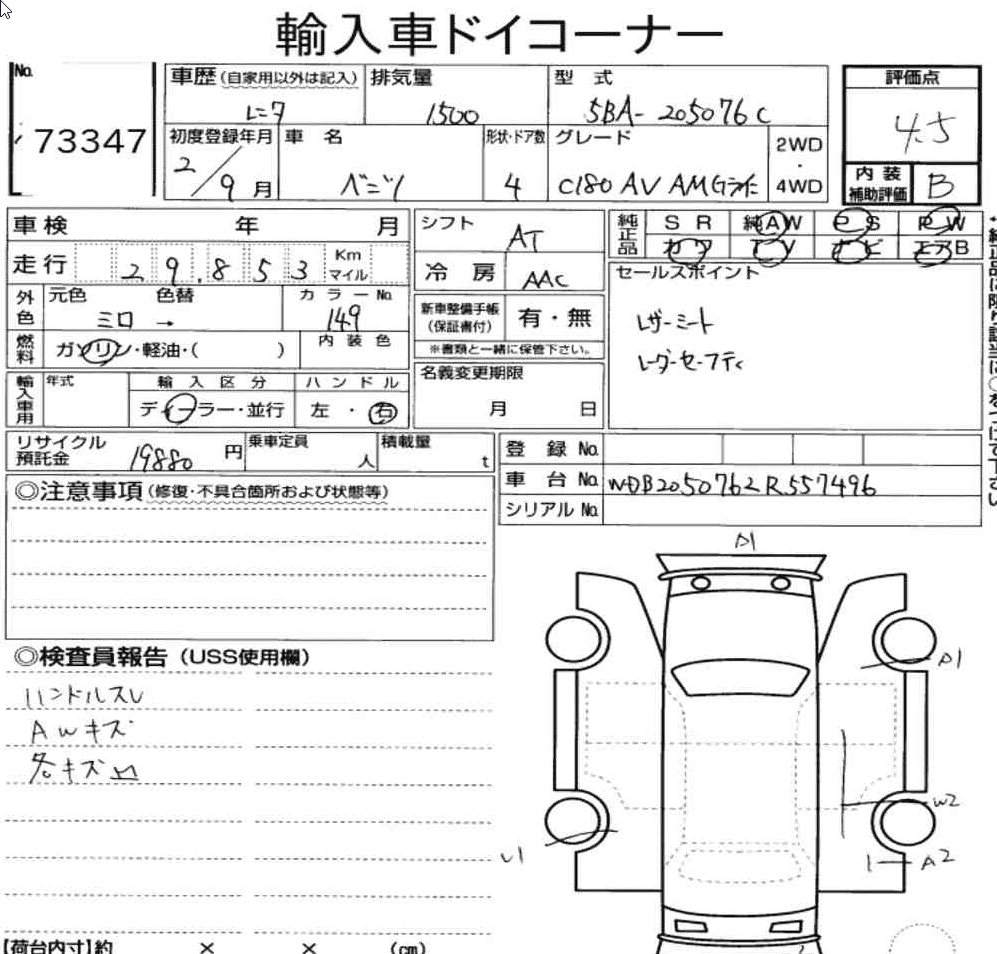 輸入車ドイコーナー
No.
73347
車歴(自家用以外は記入)
レンタ
排気量
1500
型 式
5BA-205076C
評価点
4.5
初度登録年月
2/9月
車 名
ベンツ
形状・ドア数
4
グレード
C180 AV AMGライン
2WD
・
4WD
内 装
補助評価
B
車検 年 月
走行 29,853 Km マイル
シフト
AT
冷 房
AAC
純正品
SR 純AW PS PW
カワ TV ナビ エアB
外色
元色 色替
→
カラーNo.
149
内装色
燃料
ガソリン・軽油・( )
新車整備手帳
(保証書付)
有・無
※書類と一緒に保管下さい。
セールスポイント
レザーシート
レーダーセーフティ
輸入車用
年式
輸入区分
ディーラー・並行
ハンドル
左・右
名義変更期限
月 日
リサイクル
預託金
19880円
乗車定員
人
積載量
t
登 録 No.
車 台 No. WDB2050762R557496
シリアル No.
◎注意事項(修復・不具合箇所および状態等)
◎検査員報告(USS使用欄)
ハンドルスレ
AWキズ
名キズ凹
A1
A1
W2
A2
U1
【荷台内寸】約 × × (cm)